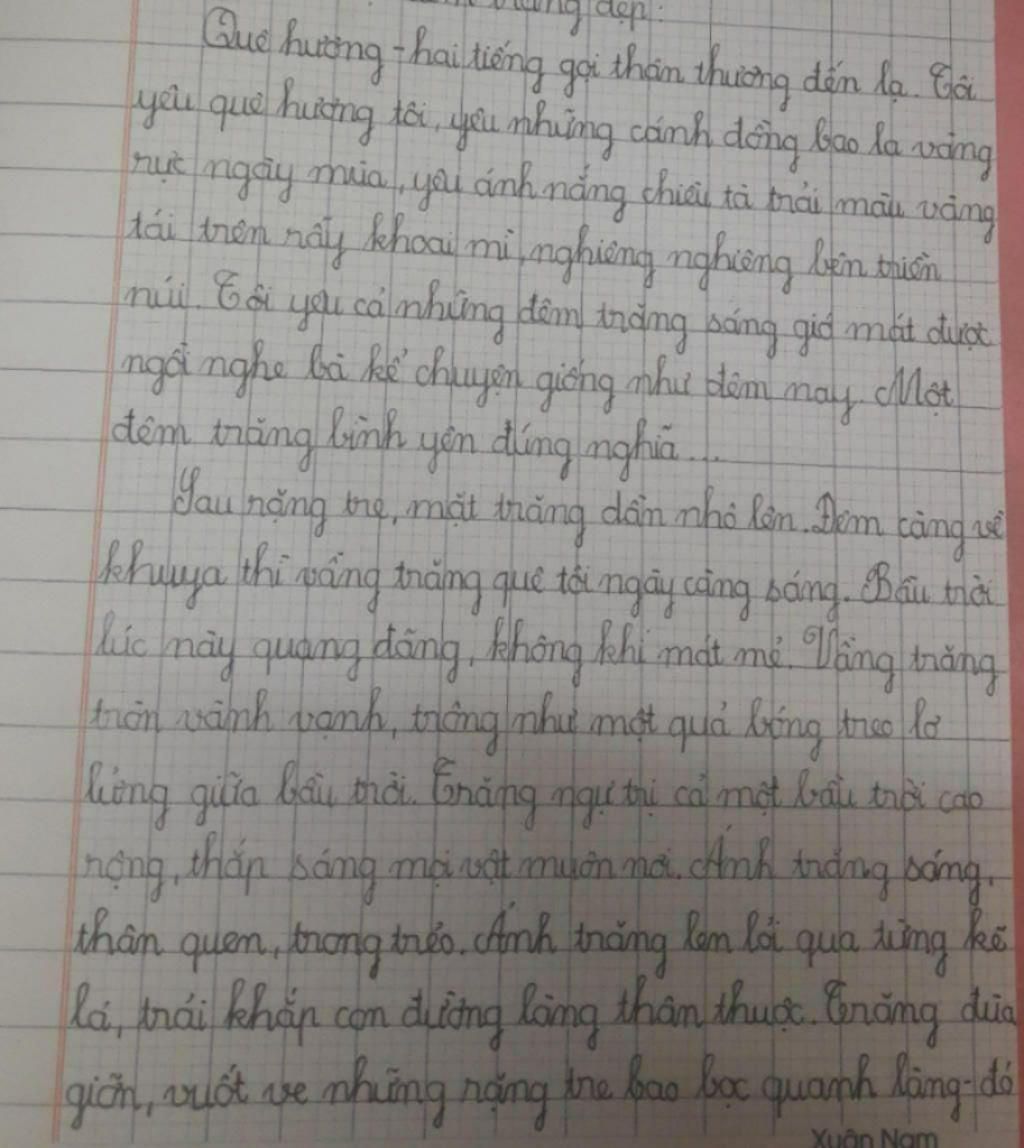 đẹp.
Quê hương - hai tiếng gọi thân thương đến lạ. Tôi
yêu quê hương tôi, yêu những cánh đồng bao la vàng
rực ngày mùa, yêu ánh nắng chiều tà trải màu vàng
tái trên rẫy khoai mì, nghiêng nghiêng bên triền
núi. Tôi yêu cả những đêm trăng sáng gió mát được
ngồi nghe bà kể chuyện giống như đêm nay. Một
đêm trăng bình yên đúng nghĩa...
Sau rặng tre, mặt trăng dần nhô lên. Đêm càng về
khuya thì vầng trăng quê tôi ngày càng sáng. Bầu trời
lúc này quang đãng, không khí mát mẻ. Vầng trăng
tròn vành vạnh, trông như một quả bóng treo lơ
lửng giữa bầu trời. Trăng ngự trị cả một bầu trời cao
rộng, thắp sáng mọi vật muôn nơi. Ánh trăng sáng,
thân quen, trong trẻo. Ánh trăng len lỏi qua từng kẽ
lá, trải khắp con đường làng thân thuộc. Trăng đùa
giỡn, vuốt ve những rặng tre bao bọc quanh làng - đó
Xuân Nam